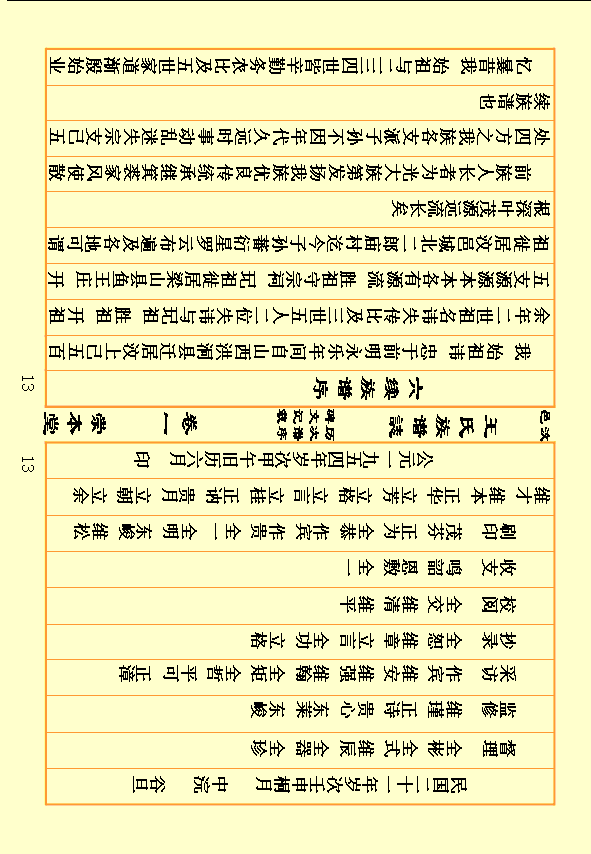 民国二十一年岁次壬申桐月 中流 谷旦
督理 全彬 全式 维辰 全器 全珍
监修 维瑾 正诗 贵心 东莱 东峻
采访 作宾 维安 维强 维翰 全矩 全哲 平可 正漳
抄录 全恕 维章 立言 全功 立格
校阅 全交 维清 维平
收支 鸣韶 恩敷 全一
刷印 茂芬 正为 全泰 作宾 作贵 全一 全明 东峻 维松
维才 本维 正华 立芳 立格 立言 立桂 正讷 贵月 立朝 立余
公元一九五四年岁次甲午旧历六月 印
13
汶邑 王氏族谱誌 历次谱序 碑文记载 卷一 崇本堂
13
六续族谱序
我 始祖 讳 忠 于前明永乐年间自山西洪洞县迁居汶上已五百
余年二世祖名讳失传比及三世五人二位失讳与 玘祖 胜祖 开祖
五支源源本本各有源流 胜祖守宗祠 玘祖徙居梁山县鱼王庄 开
祖徙居汶邑城北二郎庙村迄今子孙蕃衍星罗云布遍及各地可谓
根深叶茂源远流长矣
前族人长者为光大族第发扬我族优良传统继承箕裘家风使散
处四方之我族各支派子孙不因年代久远时事动乱迷失宗支已五
续族谱也
忆曩昔我 始祖与二三四世皆辛勤务农比及五世家道渐殷始业